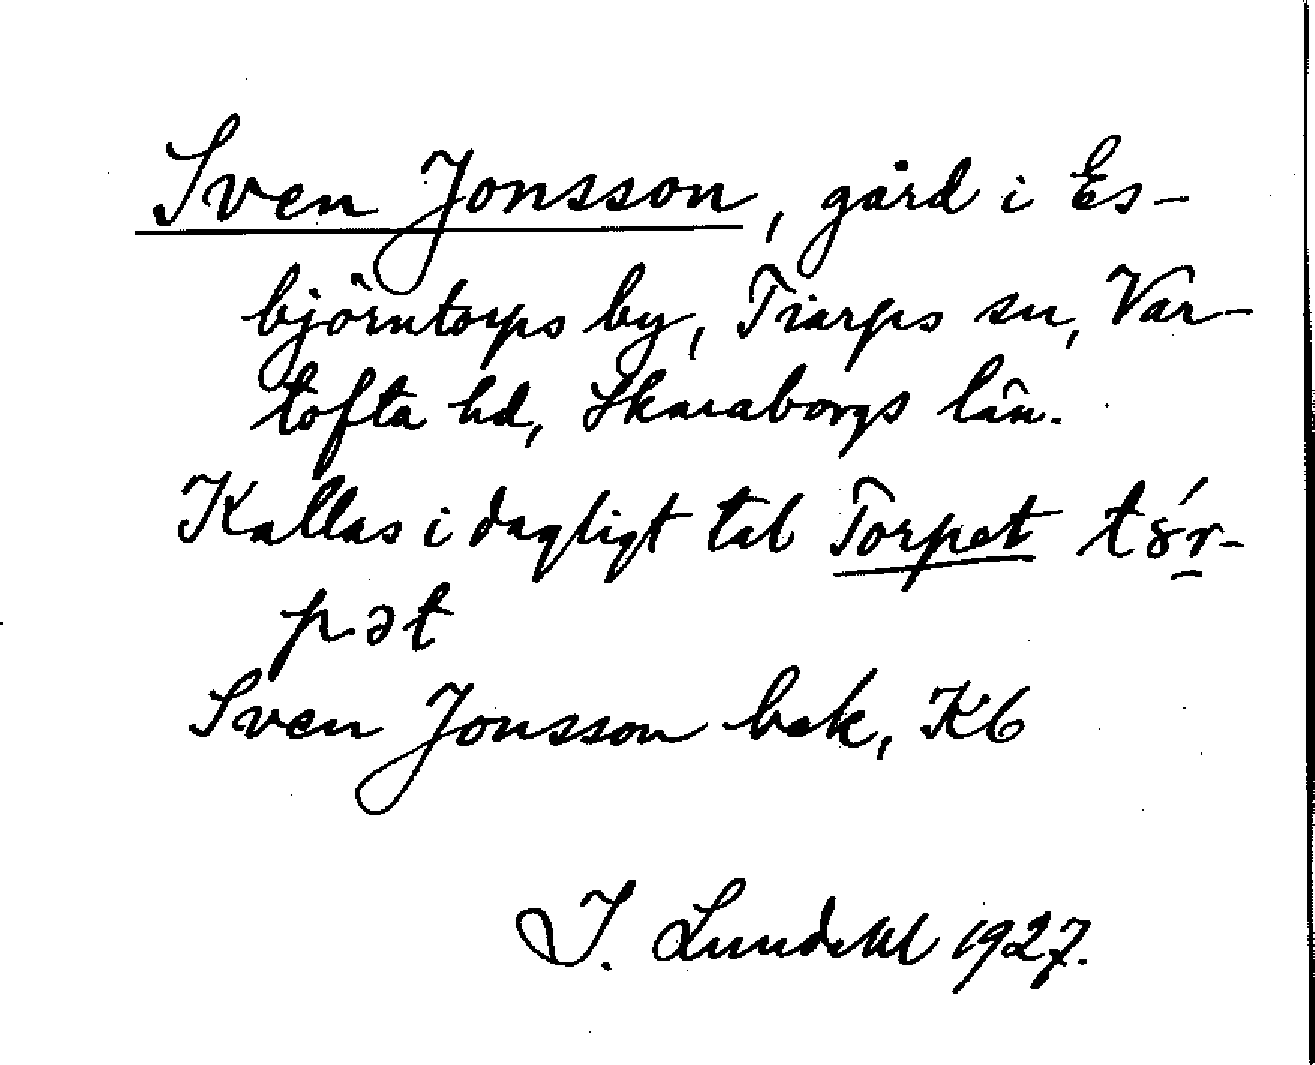 Sven Jonsson, gård i Es-
björntorps by, Tiarps sn, Var-
tofta hd, Skaraborgs län.
Kallas i dagligt tal Torpet tór-
pət
Sven Jonsson bek, K6
I. Lundahl 1927.